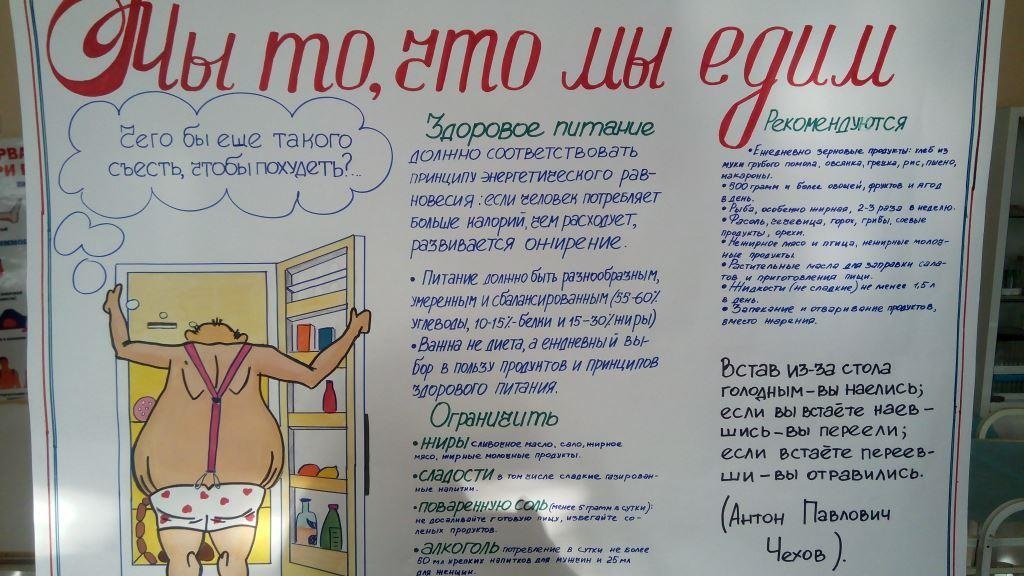 Мы то, что мы едим
Чего бы еще такого
съесть, чтобы похудеть?...
Здоровое питание
должно соответствовать
принципу энергетического рав-
новесия: если человек потребляет
больше калорий, чем расходует,
развивается ожирение.
• Питание должно быть разнообразным,
умеренным и сбалансированным (55-60%
углеводы, 10-15%-белки и 15-30% жиры)
• Важна не диета, а ежедневный вы-
бор в пользу продуктов и принципов
здорового питания.
Ограничить
• жиры сливочное масло, сало, жирное
мясо, жирные молочные продукты.
• сладости в том числе сладкие газирован-
ные напитки.
• поваренную соль (менее 5 грамм в сутки):
не досаливайте готовую пищу, избегайте со-
леных продуктов.
• алкоголь потребление в сутки не более
50 мл крепких напитков для мужчин и 25 мл
для женщин.
Рекомендуются
• Ежедневно зерновые продукты: хлеб из
муки грубого помола, овсянка, гречка, рис, пшено,
макароны.
• 500 грамм и более овощей, фруктов и ягод
в день.
• Рыба, особенно жирная, 2-3 раза в неделю.
• Фасоль, чечевица, горох, грибы, соевые
продукты, орехи.
• Нежирное мясо и птица, нежирные молоч-
ные продукты.
• Растительные масла для заправки сала-
тов и приготовления пищи.
• Жидкости (не сладкие) не менее 1,5 л
в день.
• Запекание и отваривание продуктов,
вместо жарения.
Встав из-за стола
голодным-вы наелись;
если вы встаёте наев-
шись-вы переели;
если встаёте переев-
ши-вы отравились.
(Антон Павлович
Чехов).